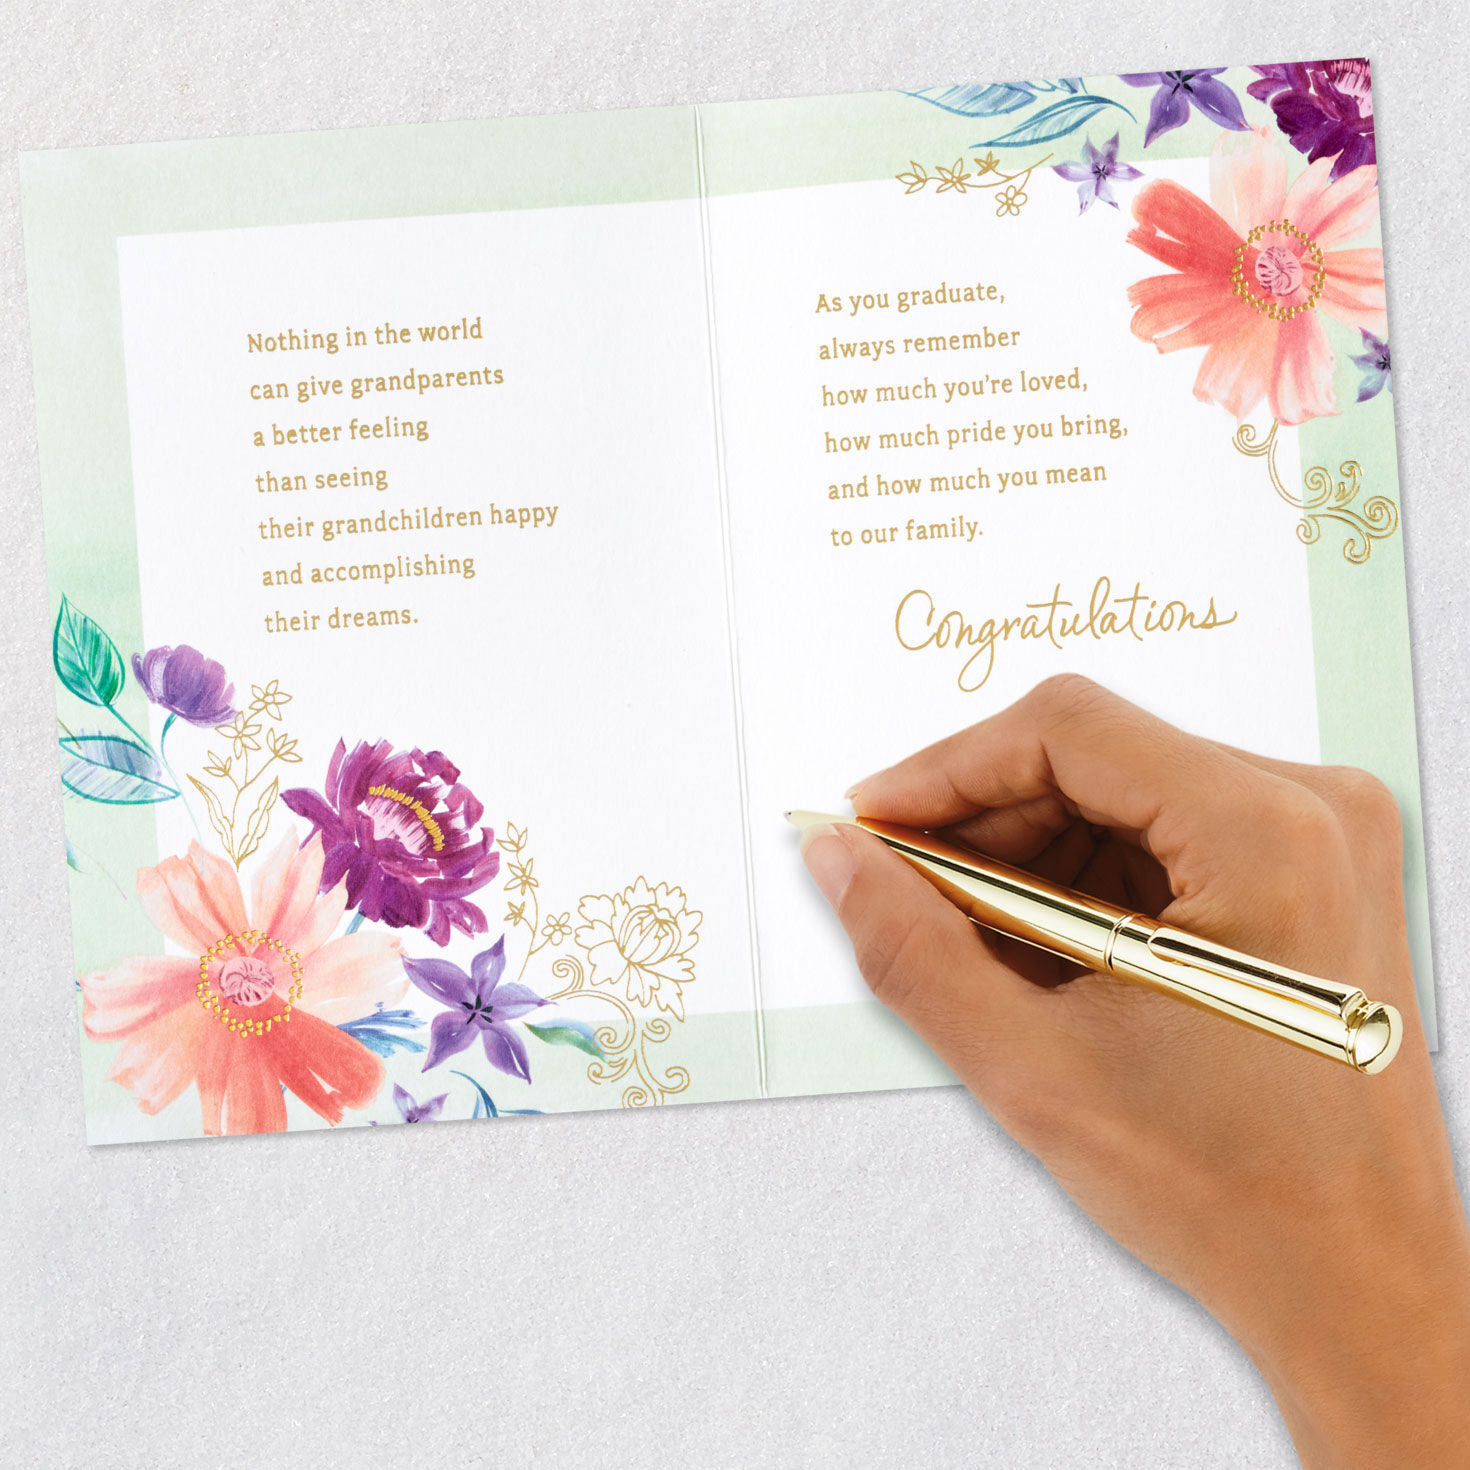 Nothing in the world
can give grandparents
a better feeling
than seeing
their grandchildren happy
and accomplishing
their dreams.
As you graduate,
always remember
how much you're loved,
how much pride you bring,
and how much you mean
to our family.
Congratulations